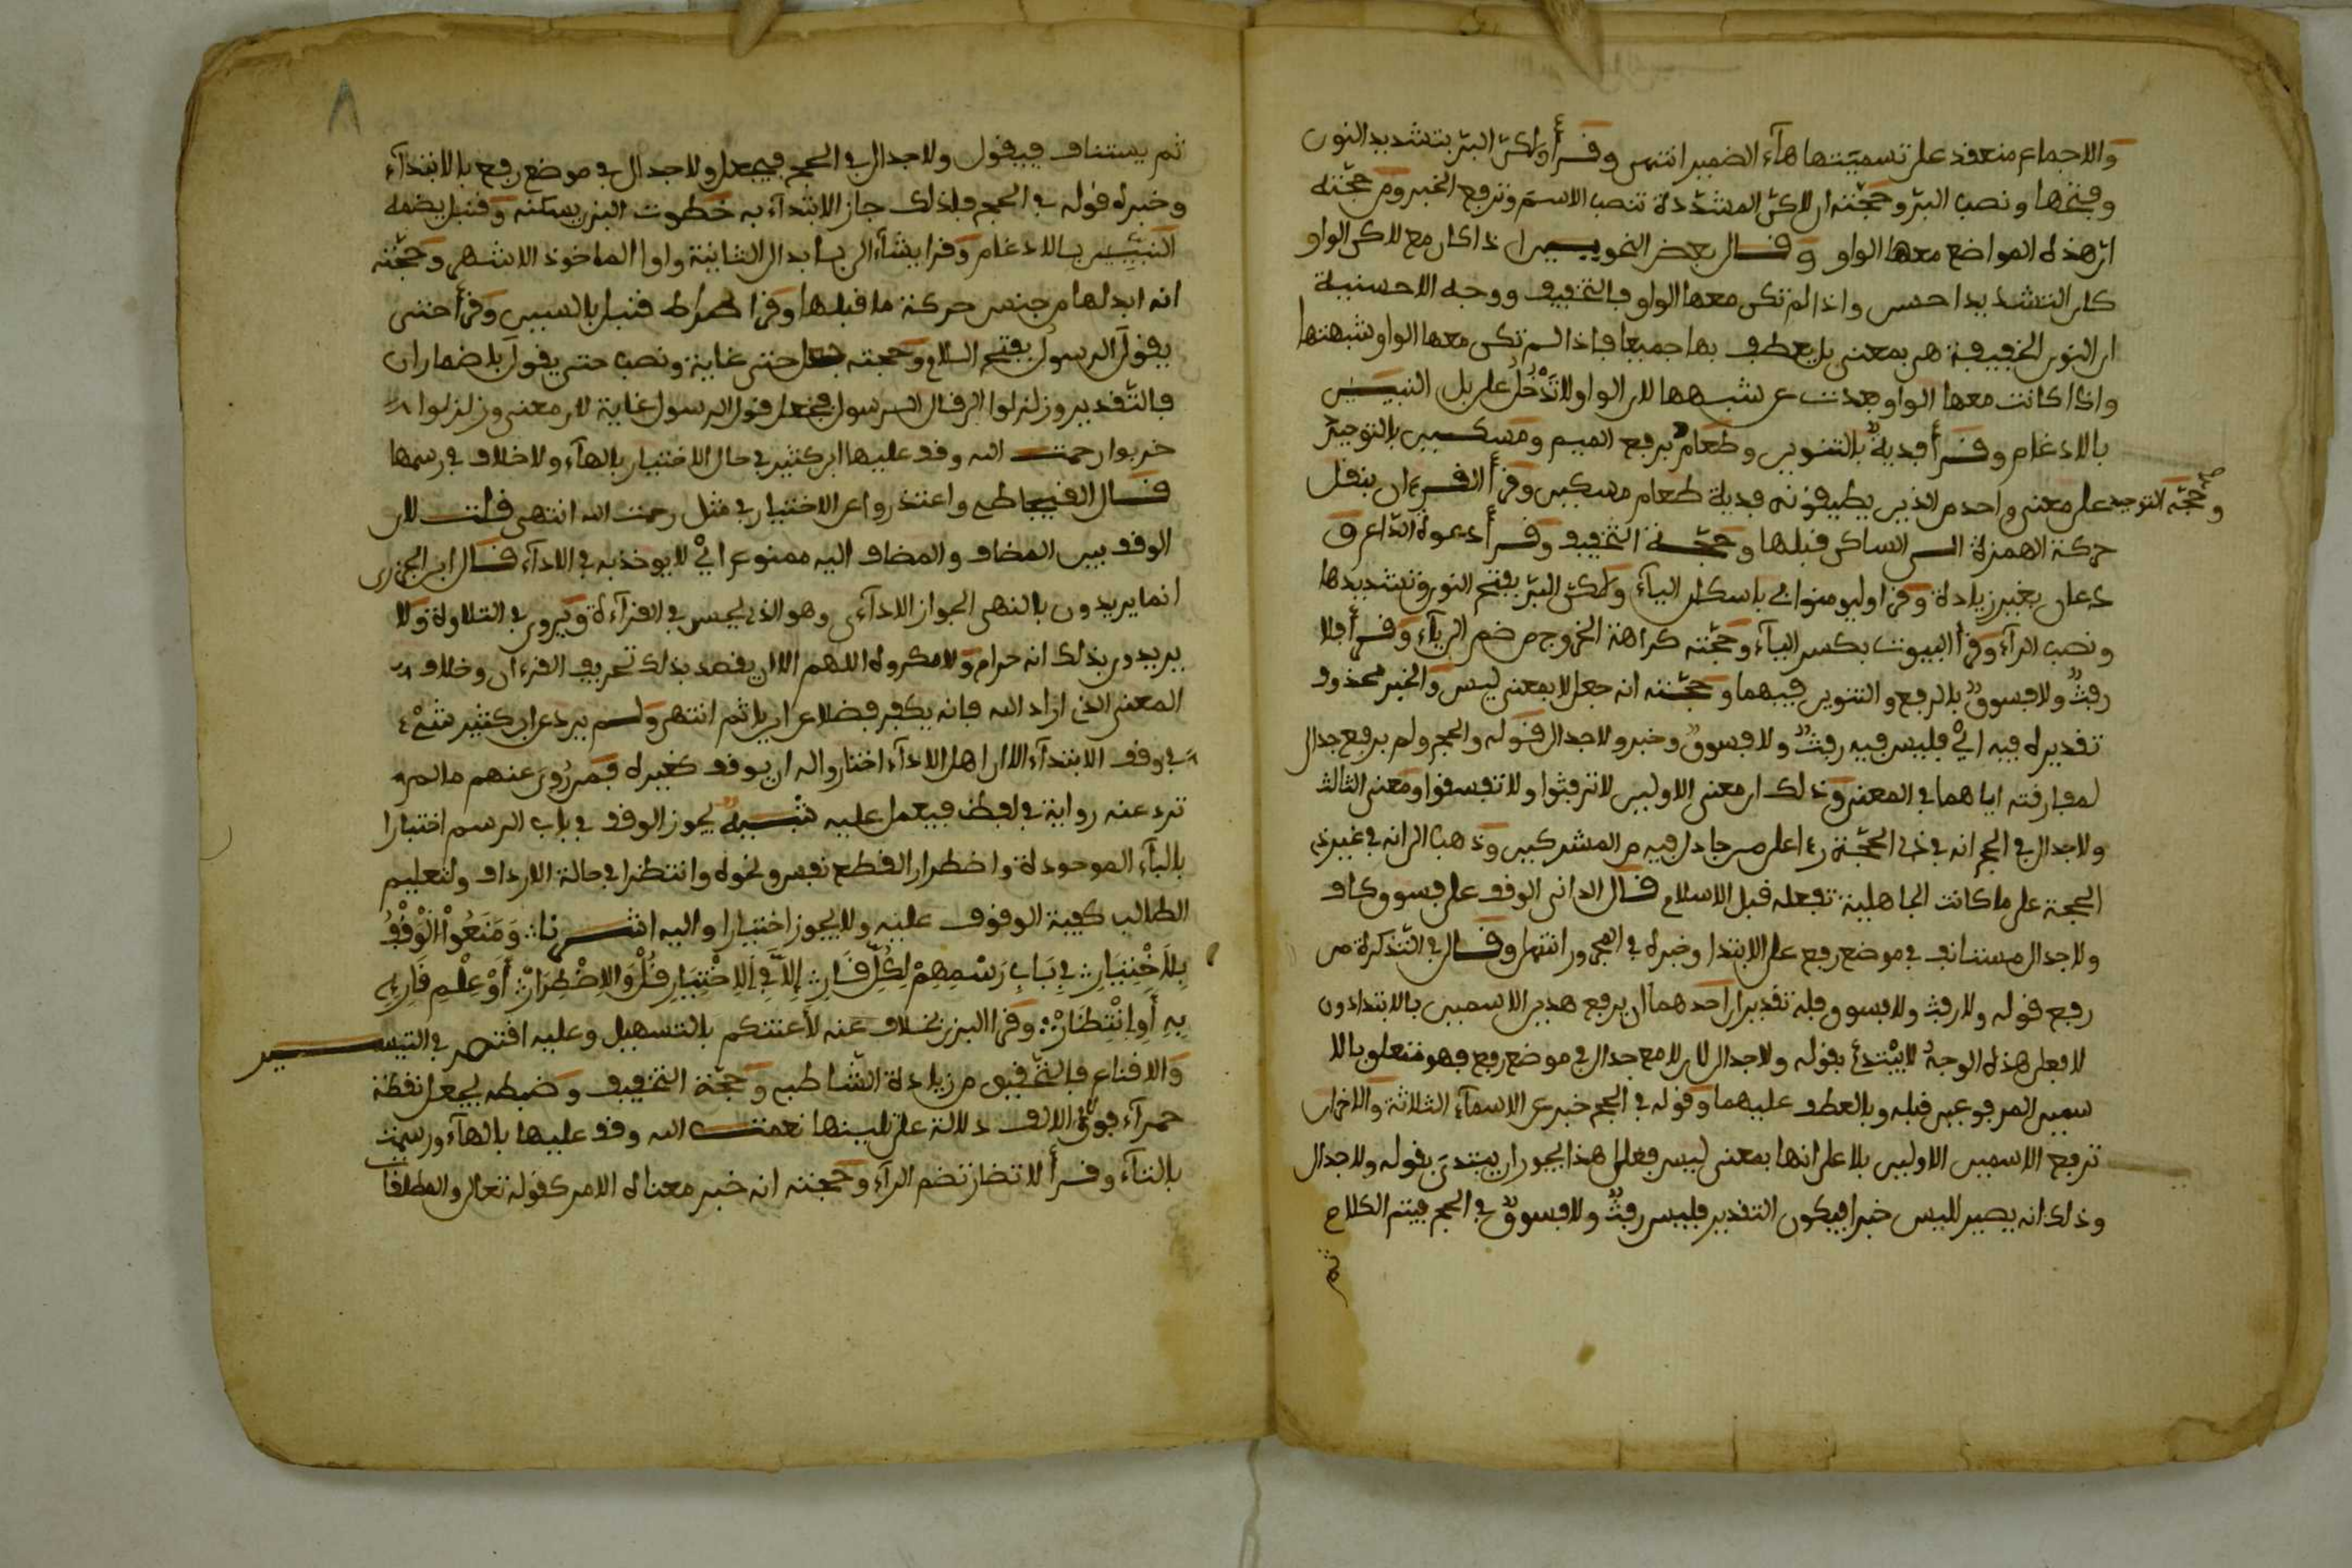 والاجماع منعقد على تسميتها هاء الضمير انتهى وقرأ ولكن البر بتشديد النون
وفتحها ونصب البر وحجته ان لاكن المشددة تنصب الاسم وترفع الخبر ومن حجته
ان هذه المواضع معها الواو وقال بعض النحويين اذا كان مع لاكن الواو
كان التشديد احسن واذا لم تكن معها الواو فالتخفيف ووجه الاحسنية
ان النون الخفيفة هي بمعنى بل يعطف بها جميعا فاذا لم تكن معها الواو شبهتها
واذا كانت معها الواو بعدت عن شبهها لان الواو لا تدخل على بل النبيين
بالادغام وقرأ فدية بالتنوين وطعام برفع الميم ومسكين بالتوحيد
وحجة التوحيد على معنى واحد من الذين يطيقونه فدية طعام مسكين وقرأ القران بنقل
حركة الهمزة الى الساكن قبلها وحجة التخفيف وقرأ دعوة الداع
دعان بغير زيادة وقرا وليومنوا بي باسكان الياء ولكن البر بفتح النون وتشديدها
ونصب الراء وقرأ البيوت بكسر الباء وحجته كراهة الخروج من ضم الى ياء وقرأ فلا
رفث ولا فسوق بالرفع والتنوين فيهما وحجته انه جعل لا بمعنى ليس والخبر محذوف
تقديره فيه اي فليس فيه رفث ولا فسوق وخبر ولا جدال قوله والحج ولم يرفع جدال
لمفارقته اياهما في المعنى وذلك ان معنى الاولين لا ترفثوا ولا تفسقوا ومعنى الثالث
ولا جدال في الحج انه في ذي الحجة ردا على من جادل فيه من المشركين وذهب الى انه في غير ذي
الحجة على ما كانت الجاهلية تفعله قبل الاسلام قال الداني الوقف على فسوق كاف
ولا جدال مستانف في موضع رفع على الابتدا وخبره في المجرور انتهى وقال في التذكرة من
رفع قوله ولا رفث ولا فسوق فله تقديران احدهما ان يرفع هذين الاسمين بالابتدا دون
لا فعلى هذه الوجه لا يبتدئ بقوله ولا جدال لان لا مع جدال في موضع رفع فهو متعلق بالا
سمين المرفوعين قبله وبالعطف عليهما وقوله في الحج خبر عن الاسماء الثلاثة والاخر ان
ترفع الاسمين الاولين بلا على انها بمعنى ليس فعلى هذا يجوز ان يبتدئ بقوله ولا جدال
وذلك انه يصير لليس خبرا فيكون التقدير فليس رفث ولا فسوق في الحج فيتم الكلام
ثم
٨
ثم يستانف فيقول ولا جدال في الحج فيجعل ولا جدال في موضع رفع بالابتداء
وخبره قوله في الحج فلذلك جاز الابتداء به خطوت البزي يسكنه وقنبل يضمه
النبيين بالادغام وقرا يشاء الى بابدال الثانية واوا الماخوذ الاشهر وحجته
انه ابدلها من جنس حركة ما قبلها وقرا صراط قنبل بالسين وقرأ حتى
يقول الرسول بفتح اللام وحجته جعل حتى غاية ونصب حتى يقول باضمار ان
فالتقدير وزلزلوا الى قال الرسول فجعل قول الرسول غاية لان معنى وزلزلوا
خربوا رحمت الله وقف عليها ابن كثير في حال الاختبار بالهاء ولا خلاف في رسمها
قال القيجاطي واعتذروا عن الاختبار في مثل رحمت الله انتهى قلت لان
الوقف بين المضاف والمضاف اليه ممنوع اي لا يوخذ به في الاداء قال ابن الجزري
انما يريدون بالنهي الجواز الاداءي وهو الذي يحسن في القراءة ويروق في التلاوة ولا
يريدون بذلك انه حرام ولا مكروه اللهم الا ان يقصد بذلك تحريف القرءان وخلاف
المعنى الذي اراد الله فانه يكفر فضلا عن ان ياثم انتهى ولم يرد عن ابن كثير شيء
في وقف الابتداء الا ان اهل الاداء اختاروا له ان يوقف كغيره فمن روي عنهم ما لم
ترد عنه رواية في لفظ فيعمل عليه تنبيه يجوز الوقف في باب الرسم اختبارا
بالباء الموحودة واضطرارا لقطع نفس ونحوه وانتظارا في حالة الارداف ولتعليم
الطالب كيفية الوقوف عليه ولا يجوز اختيارا واليه اشرنا وَمَنَعُوا الْوَقْفَ
بِالاخْتِيَارِ فِي بَابِ رَسْمِهِمْ لِكُلِّ قَارِ إِلاَّ فِي الاخْتِبَارِ قُلْ وَالاضْطِرَارْ أَوْ عِلْمِ قَارِئٍ
بِهِ أَوِ انْتِظَارْ وقرا البزي بخلاف عنه لأعنتكم بالتسهيل وعليه اقتصر في التيسير
والاقناع فالتحقيق من زيادة الشاطبي وحجة التخفيف وضبطه بجعل نقطة
حمراء فوق الالف دلالة على تليينها نعمت الله وقف عليها بالهاء ورسمت
بالتاء وقرأ لا تضار بضم الراء وحجته انه خبر معناه الامر كقوله تعالى والمطلقات